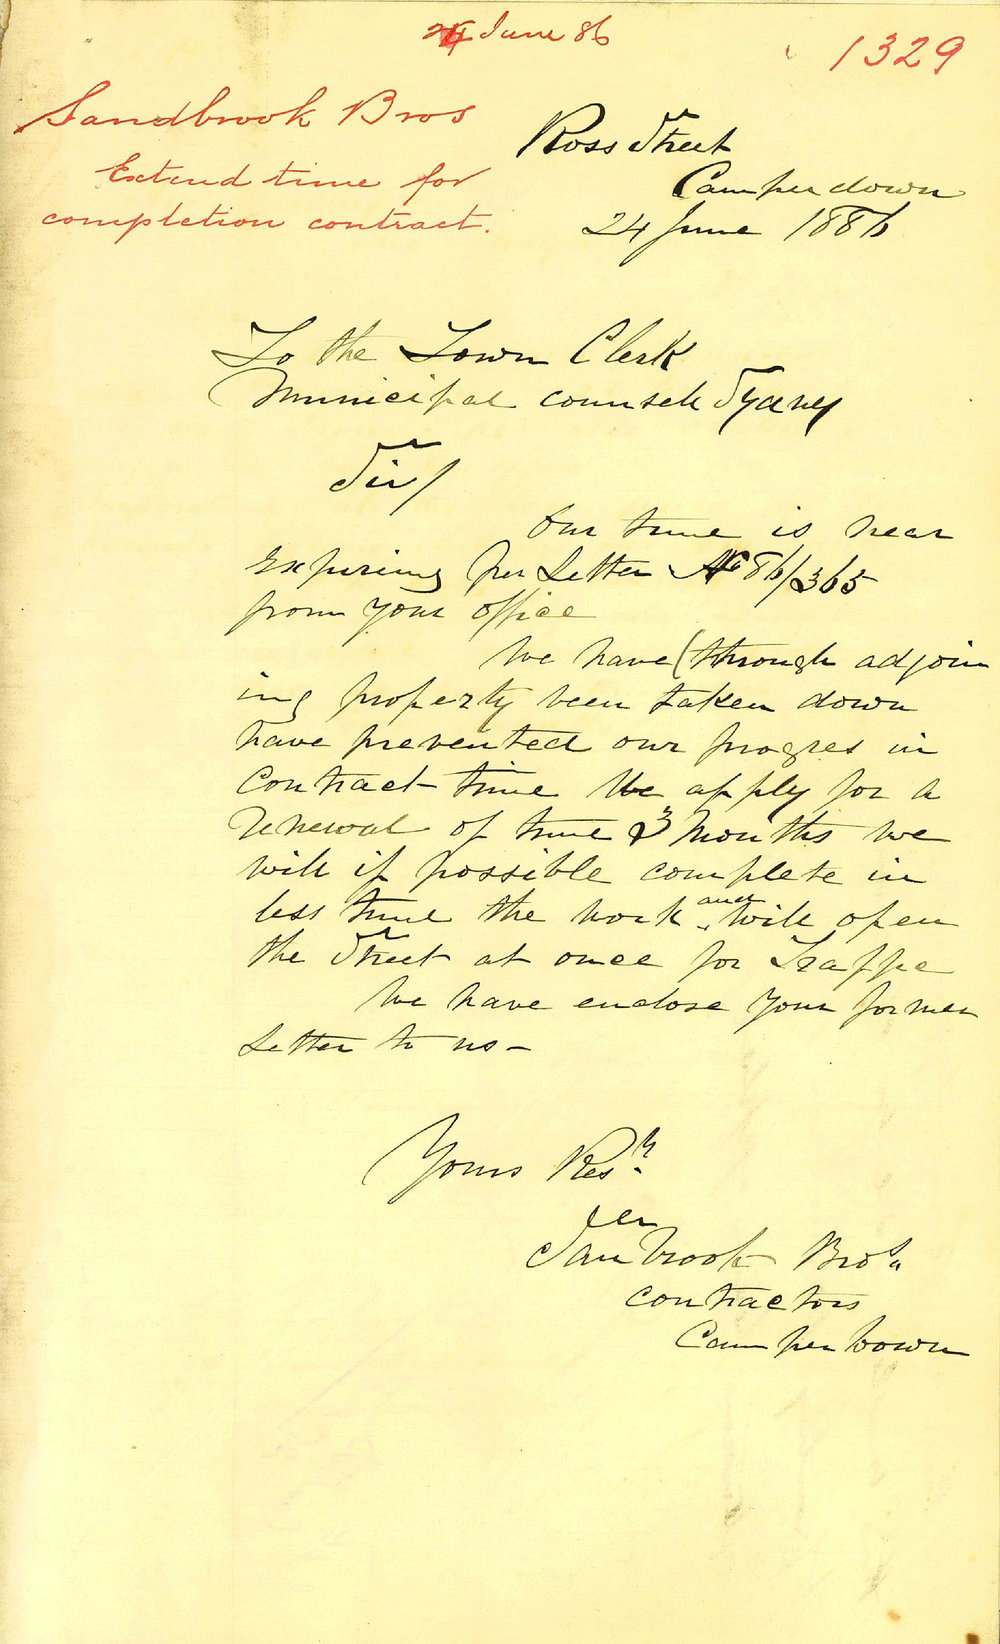 24 June 86
1329
Sandbrook Bros
Extend time for
completion contract.
Ross Street
Camperdown
24 June 1886
To the Town Clerk
Municipal counsel Sydney
Sir/
Our time is near
Expiring per Letter No 86/365
from your office
We have (through adjoin
ing property been taken down
have prevented our progres in
contract time We apply for a
renewal of time 3 Months we
will if possible complete in
less time the work and will open
the Street at once for Traffic
We have enclose your former
Letter to us -
Yours Resy
Sanbrook Bros
contractors
Camperdown